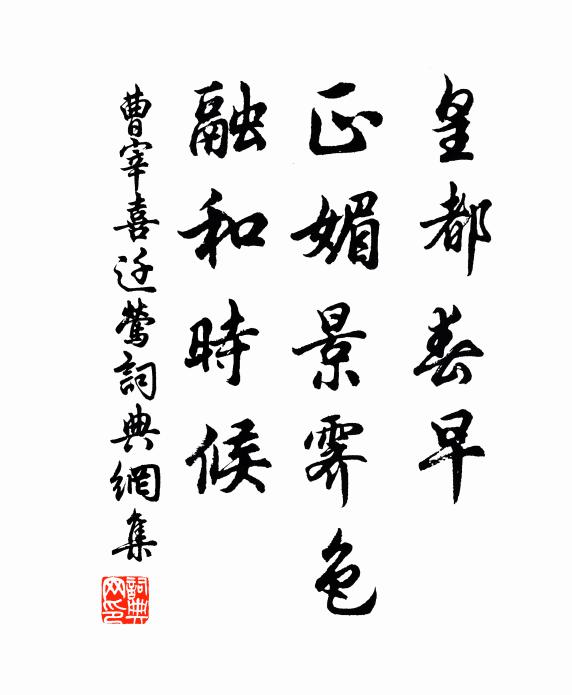 皇都春早
正媚景霽色
融和時候
曹宰喜迁鶯詞典網集
詞典网印